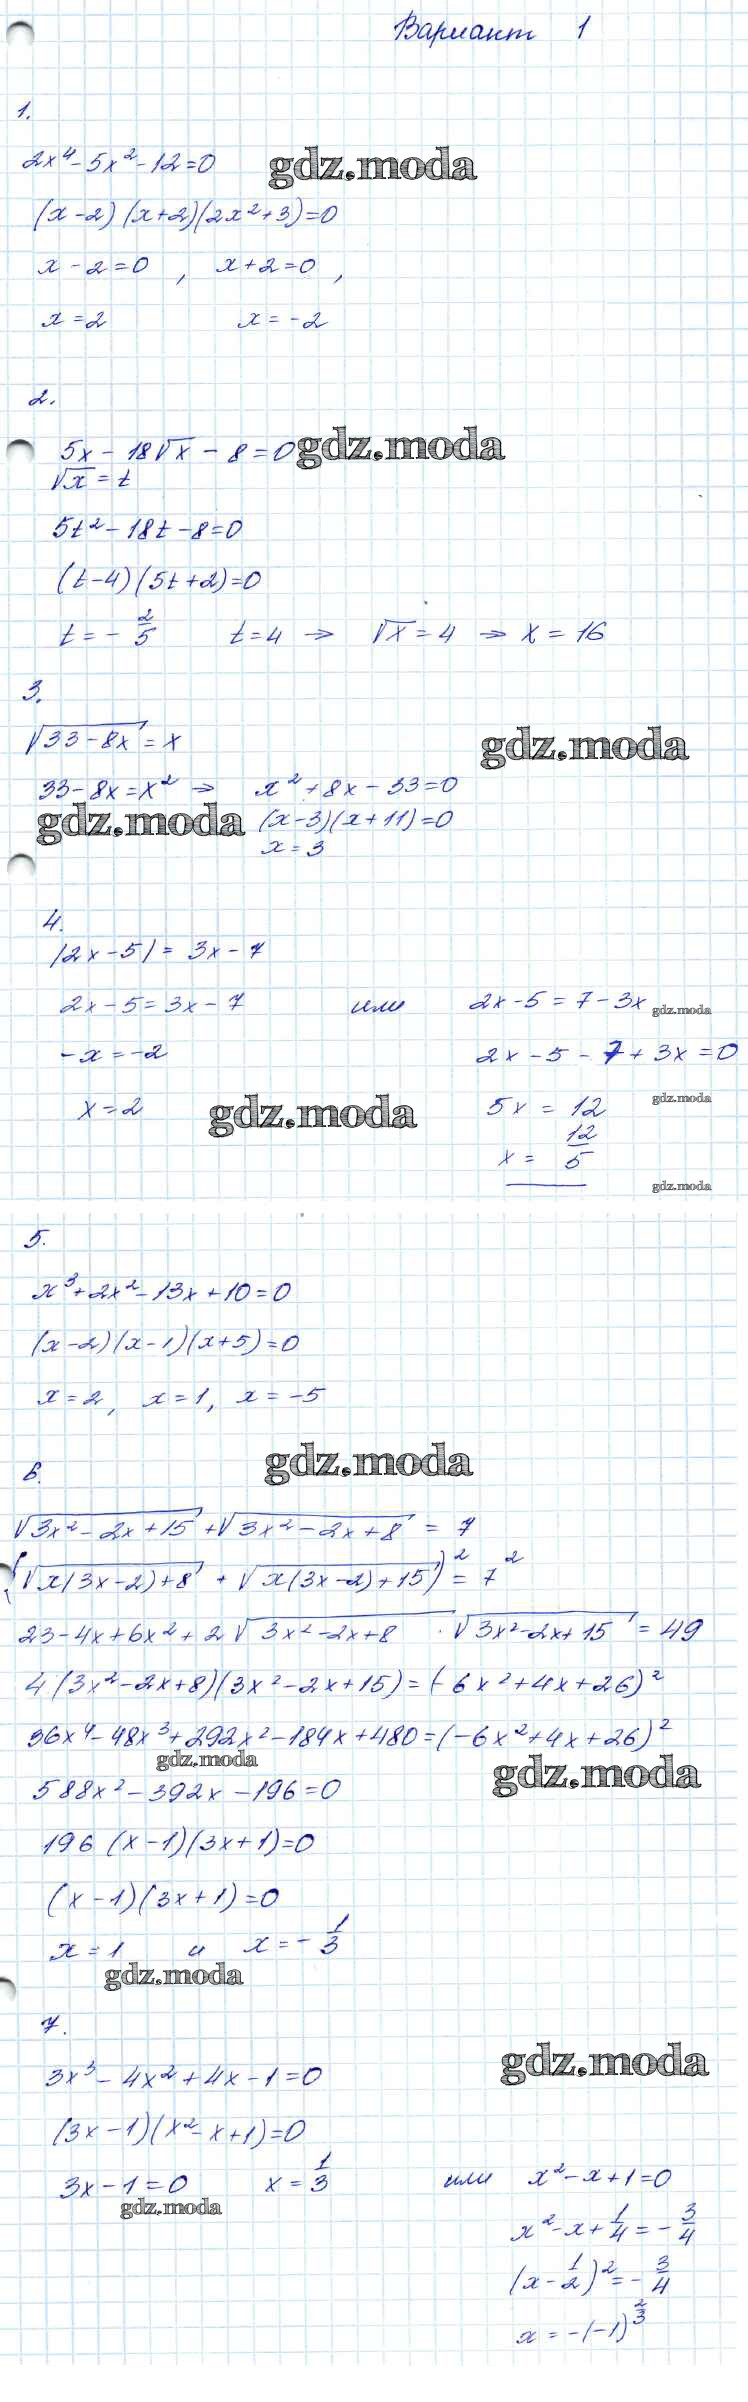 Вариант 1
1.
2x⁴ - 5x² - 12 = 0
gdz.moda
(x - 2) (x + 2)(2x² + 3) = 0
x - 2 = 0 , x + 2 = 0 ,
x = 2 x = -2
2.
5x - 18√x - 8 = 0
gdz.moda
√x = t
5t² - 18t - 8 = 0
(t - 4) (5t + 2) = 0
t = - 2/5 t = 4 → √x = 4 ⇒ x = 16
3.
√33 - 8x = x
gdz.moda
33 - 8x = x² ⇒ x² + 8x - 33 = 0
gdz.moda
(x - 3)(x + 11) = 0
x = 3
4.
|2x - 5| = 3x - 7
2x - 5 = 3x - 7 или 2x - 5 = 7 - 3x
gdz.moda
-x = -2 2x - 5 - 7 + 3x = 0
x = 2 5x = 12
gdz.moda
gdz.moda
x = 12/5
gdz.moda
5.
x³ + 2x² - 13x + 10 = 0
(x - 2)(x - 1)(x + 5) = 0
x = 2 , x = 1 , x = -5
6.
gdz.moda
√3x² - 2x + 15 + √3x² - 2x + 8 = 7
(√x(3x - 2) + 8 + √x(3x - 2) + 15)² = 7²
23 - 4x + 6x² + 2√3x² - 2x + 8 · √3x² - 2x + 15 = 49
4(3x² - 2x + 8)(3x² - 2x + 15) = (-6x² + 4x + 26)²
36x⁴ - 48x³ + 292x² - 184x + 480 = (-6x² + 4x + 26)²
gdz.moda
gdz.moda
588x² - 392x - 196 = 0
196 (x - 1)(3x + 1) = 0
(x - 1)(3x + 1) = 0
x = 1 и x = - 1/3
gdz.moda
7.
gdz.moda
3x³ - 4x² + 4x - 1 = 0
(3x - 1)(x² - x + 1) = 0
3x - 1 = 0 x = 1/3 или x² - x + 1 = 0
gdz.moda
x² - x + 1/4 = - 3/4
(x - 1/2)² = - 3/4
x = -(-1)^2/3